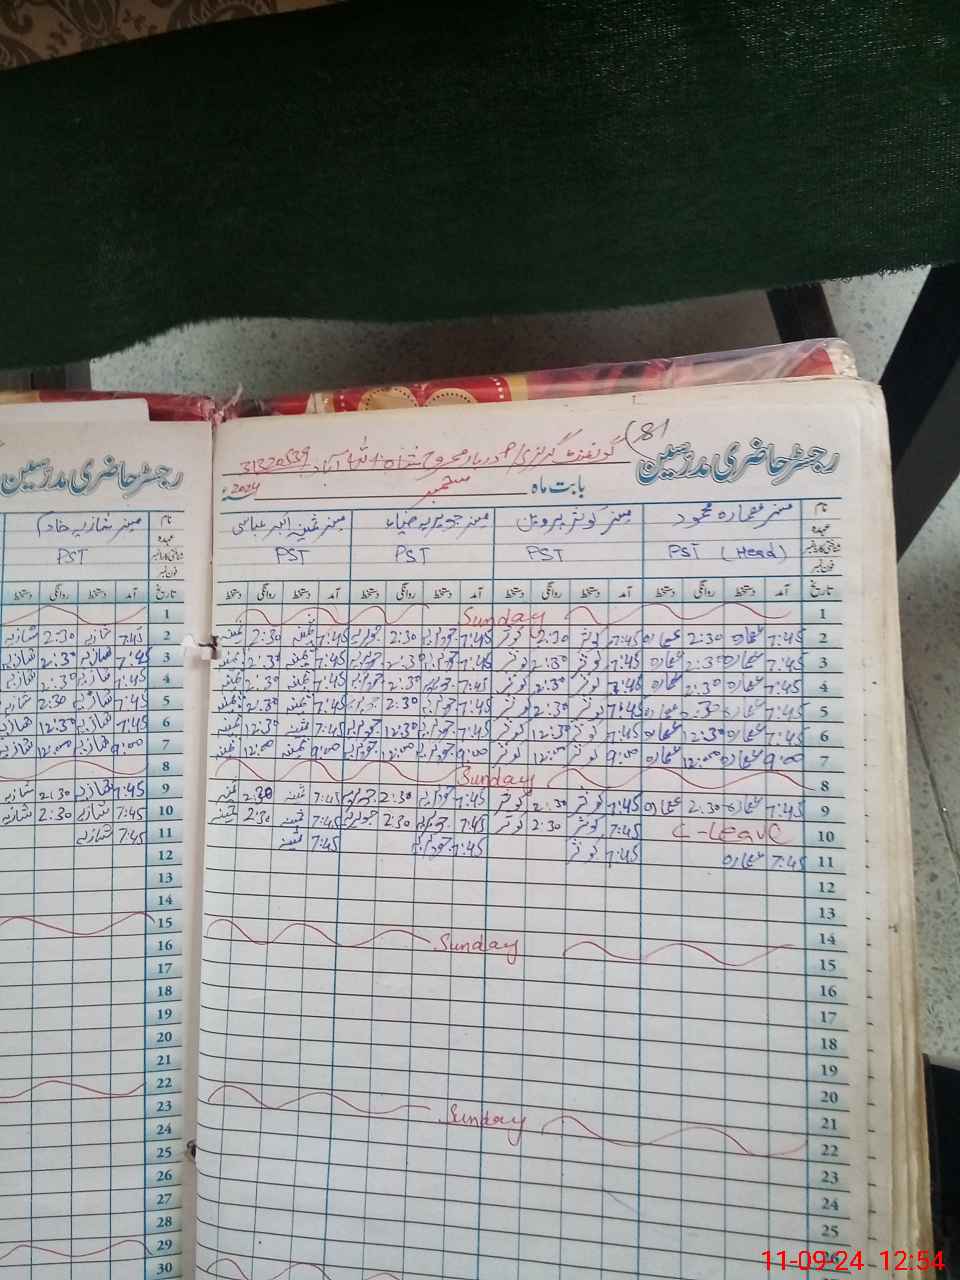 رجسٹر حاضری مدرسین
(81
گورنمنٹ گرلز
31320539
بابت ماہ ستمبر 2024ء
نام مسز عمارہ محمود مسز کوثر پروین مسز جویریہ ضیاء مسز ثمینہ اکبر عباسی
عہدہ
PST (Head) PST PST PST
فون نمبر
تاریخ آمد دستخط روانگی دستخط آمد دستخط روانگی دستخط آمد دستخط روانگی دستخط آمد دستخط روانگی دستخط
1 Sunday
2 7:45 عمارہ 2:30 عمارہ 7:45 کوثر 2:30 کوثر 7:45 جویریہ 2:30 جویریہ 7:45 ثمینہ 2:30 ثمینہ
3 7:45 عمارہ 2:30 عمارہ 7:45 کوثر 2:30 کوثر 7:45 جویریہ 2:30 جویریہ 7:45 ثمینہ 2:30 ثمینہ
4 7:45 عمارہ 2:30 عمارہ 7:45 کوثر 2:30 کوثر 7:45 جویریہ 2:30 جویریہ 7:45 ثمینہ 2:30 ثمینہ
5 7:45 عمارہ 2:30 عمارہ 7:45 کوثر 2:30 کوثر 7:45 جویریہ 2:30 جویریہ 7:45 ثمینہ 2:30 ثمینہ
6 7:45 عمارہ 12:30 عمارہ 7:45 کوثر 12:30 کوثر 7:45 جویریہ 12:30 جویریہ 7:45 ثمینہ 12:30 ثمینہ
7 9:00 عمارہ 12:00 عمارہ 9:00 کوثر 12:00 کوثر 9:00 جویریہ 12:00 جویریہ 9:00 ثمینہ 12:00 ثمینہ
8 Sunday
9 7:45 عمارہ 2:30 عمارہ 7:45 کوثر 2:30 کوثر 7:45 جویریہ 2:30 جویریہ 7:45 ثمینہ 2:30 ثمینہ
10 C-Leave 7:45 کوثر 2:30 کوثر 7:45 جویریہ 2:30 جویریہ 7:45 ثمینہ 2:30 ثمینہ
11 7:45 عمارہ 7:45 کوثر 7:45 جویریہ 7:45 ثمینہ
12
13
14
15 Sunday
16
17
18
19
20
21
22 Sunday
23
24
25
26
رجسٹر حاضری مدرسین
نام مسز شازیہ خادم
عہدہ
PST
فون نمبر
تاریخ آمد دستخط روانگی دستخط
1
2 7:45 شازیہ 2:30 شازیہ
3 7:45 شازیہ 2:30 شازیہ
4 7:45 شازیہ 2:30 شازیہ
5 7:45 شازیہ 2:30 شازیہ
6 7:45 شازیہ 12:30 شازیہ
7 9:00 شازیہ 12:00 شازیہ
8
9 7:45 شازیہ 2:30 شازیہ
10 7:45 شازیہ 2:30 شازیہ
11 7:45 شازیہ
12
13
14
15
16
17
18
19
20
21
22
23
24
25
26
27
28
29
30
11-09-24 12:54